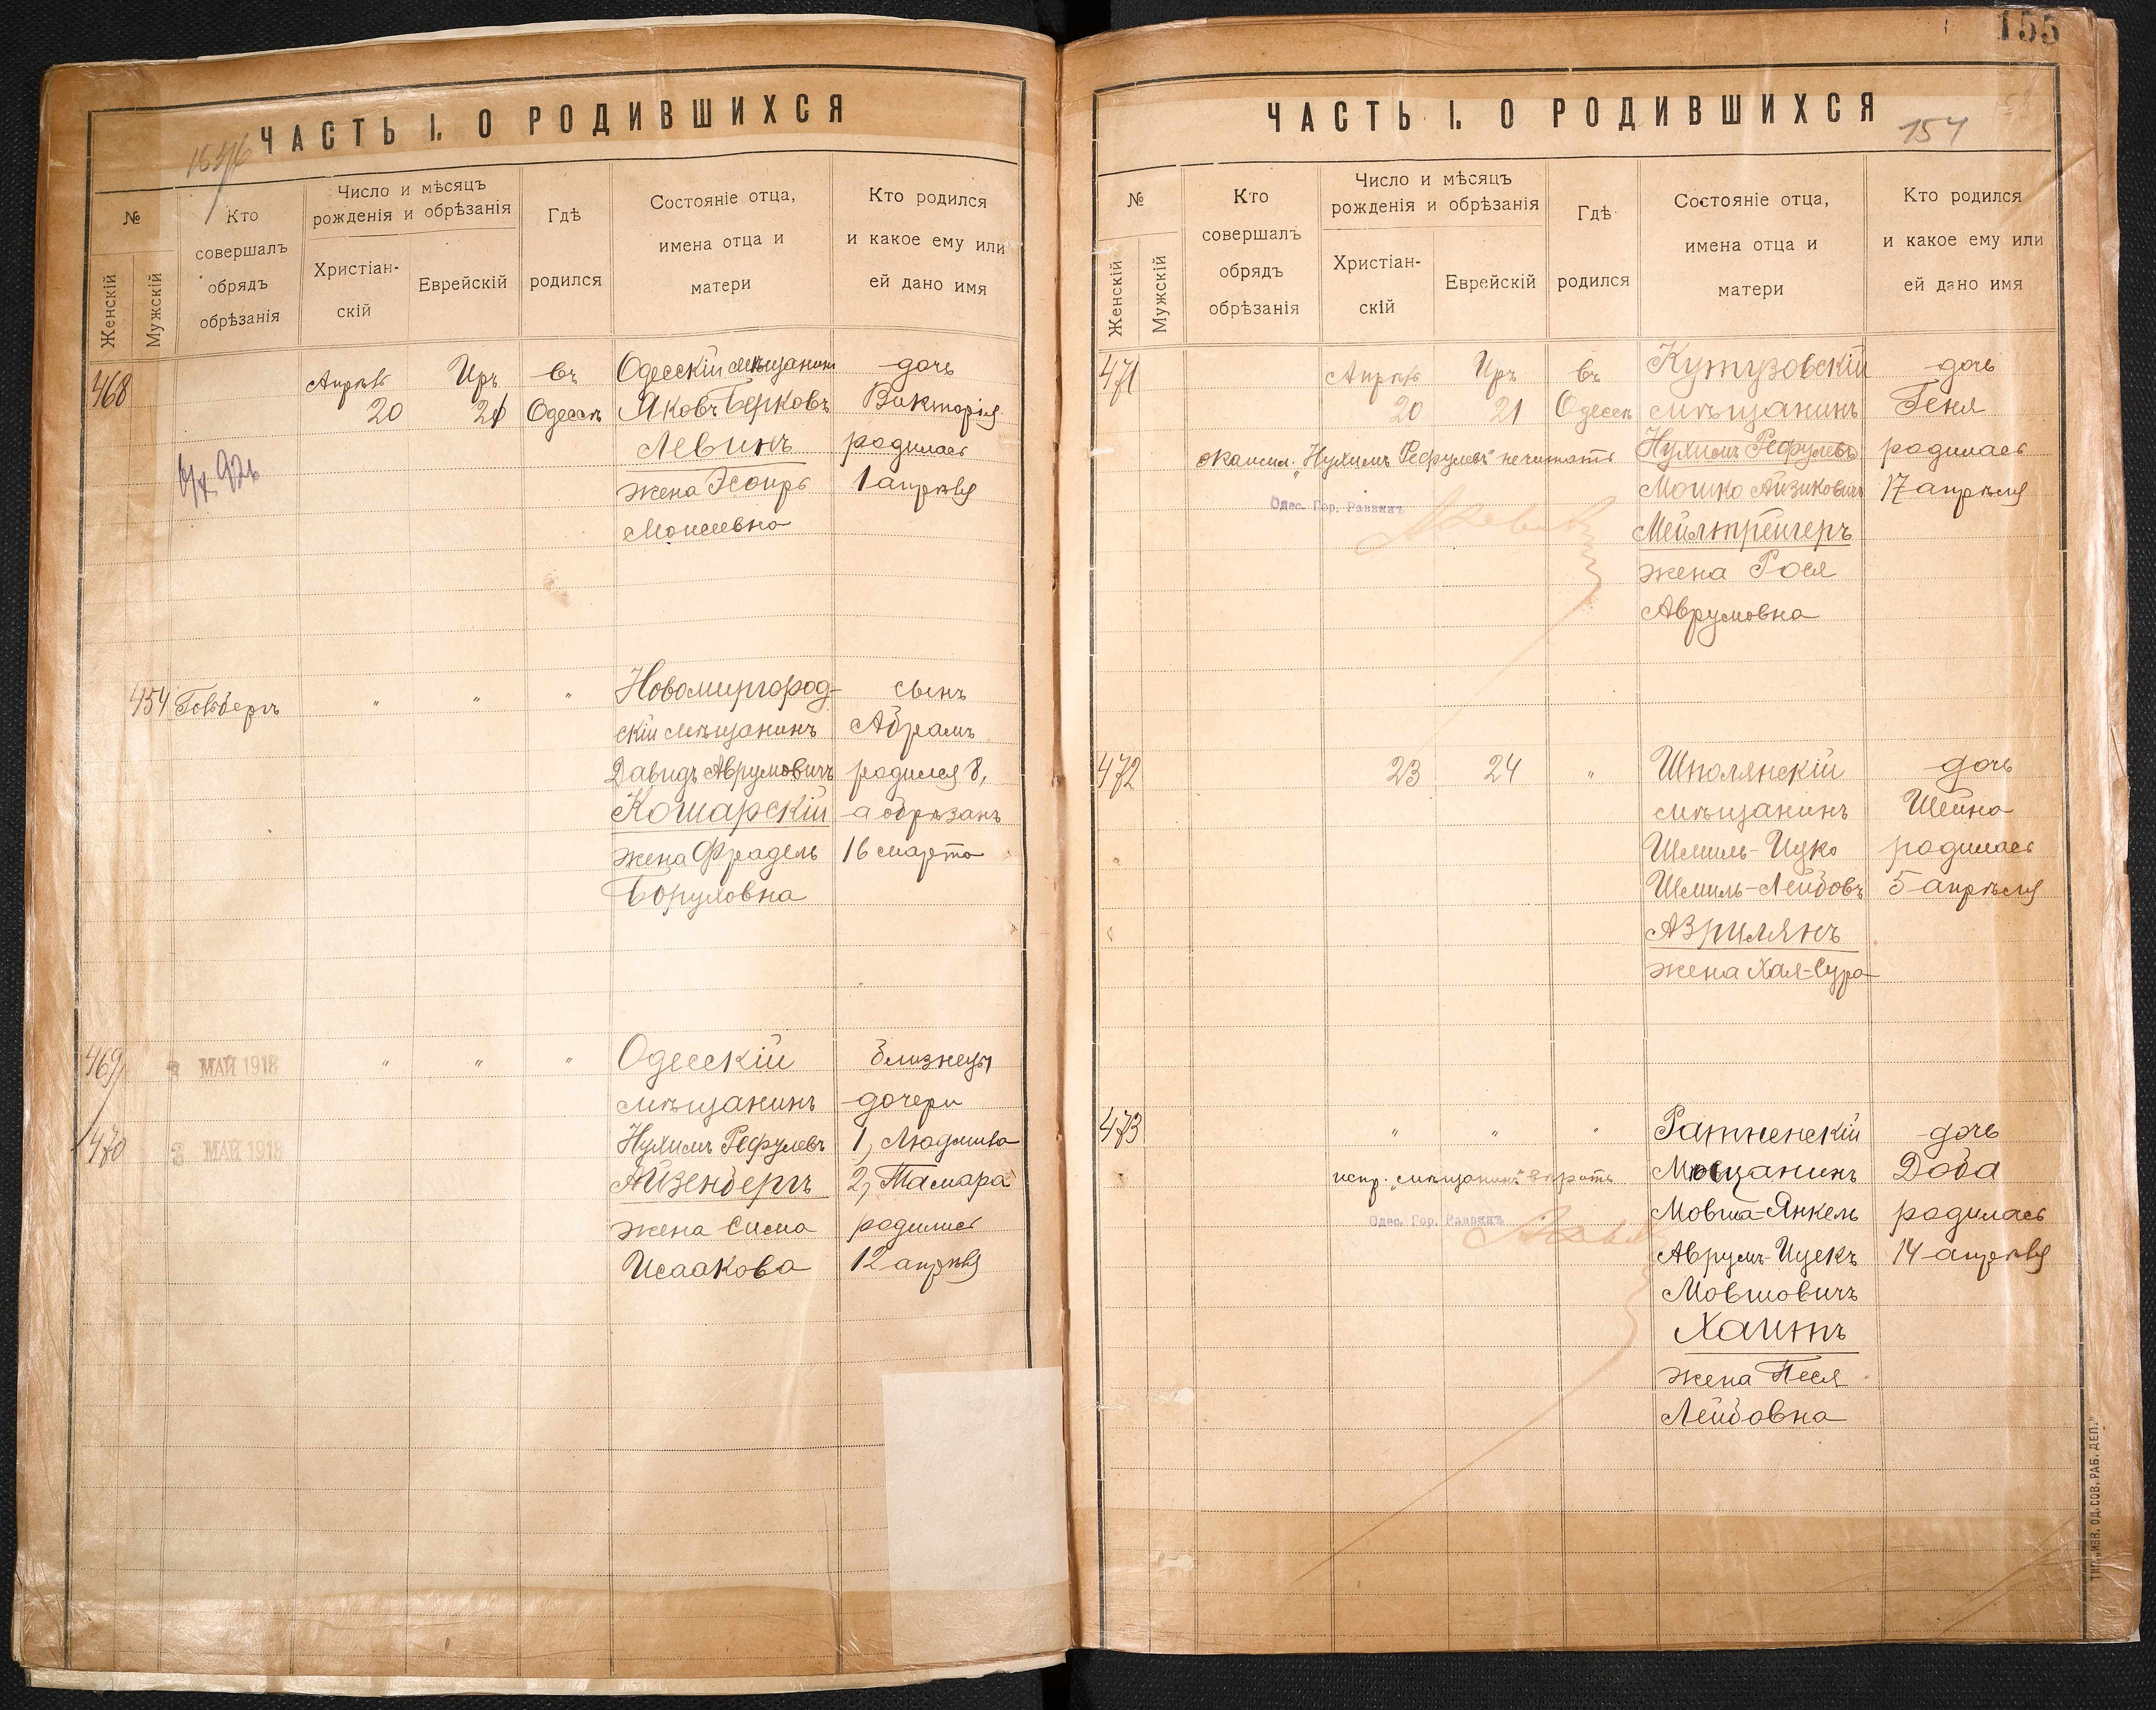 ЧАСТЬ I. О РОДИВШИХСЯ
№
Женскій
Мужскій
Кто
совершалъ
обрядъ
обрѣзанія
Число и мѣсяцъ
рожденія и обрѣзанія
Христіан-
скій
Еврейскій
Гдѣ
родился
Состояніе отца,
имена отца и
матери
Кто родился
и какое ему или
ей дано имя
468
Апрѣль
20
Иръ
21
въ
Одессѣ
Одесскій мѣщанинъ
Яковъ Берковъ
Левинъ
жена Эсѳирь
Моисеевна
дочь
Викторія
родилась
1 апрѣля
454
Гольбергъ
"
"
"
Новомиргород-
скій мѣщанинъ
Давидъ Аврумовичъ
Кошарскій
жена Фрадель
Боруховна
сынъ
Абрамъ
родился 8,
а обрѣзанъ
16 марта
469/
/470
3 МАЙ 1918
3 МАЙ 1918
"
"
"
Одесскій
мѣщанинъ
Нухимъ Рефулевъ
Айзенбергъ
жена Сима
Исаакова
близнецы
дочери
1, Людмила
2, Тамара
родились
12 апрѣля
155
154
ЧАСТЬ I. О РОДИВШИХСЯ
№
Женскій
Мужскій
Кто
совершалъ
обрядъ
обрѣзанія
Число и мѣсяцъ
рожденія и обрѣзанія
Христіан-
скій
Еврейскій
Гдѣ
родился
Состояніе отца,
имена отца и
матери
Кто родился
и какое ему или
ей дано имя
471
Апрѣль
20
Иръ
21
въ
Одессѣ
"Нухимъ Рефулевъ" не читать
Одес. Гор. Раввинъ
Кутузовскій
мѣщанинъ
Нухимъ Рефулевъ
Мошко Айзиковичъ
Мейлтрегеръ
жена Рося
Аврумовна
дочь
Геня
родилась
17 апрѣля
472
23
24
"
Шполянскій
мѣщанинъ
Шмиль-Ицко
Шмиль-Лейбовъ
Азрилянъ
жена Хая-Сура
дочь
Шейна
родилась
5 апрѣля
473
"
"
"
испр. "мѣщанинъ" вѣрить
Одес. Гор. Раввинъ
Ратненскій
Мѣщанинъ
Мовша-Янкель
Аврумъ-Ицекъ
Мовшовичъ
Хаитъ
жена Песя
Лейбовна
дочь
Доба
родилась
14 апрѣля
ТИП. „ИЗВ. ОД. СОВ. РАБ. ДЕП."